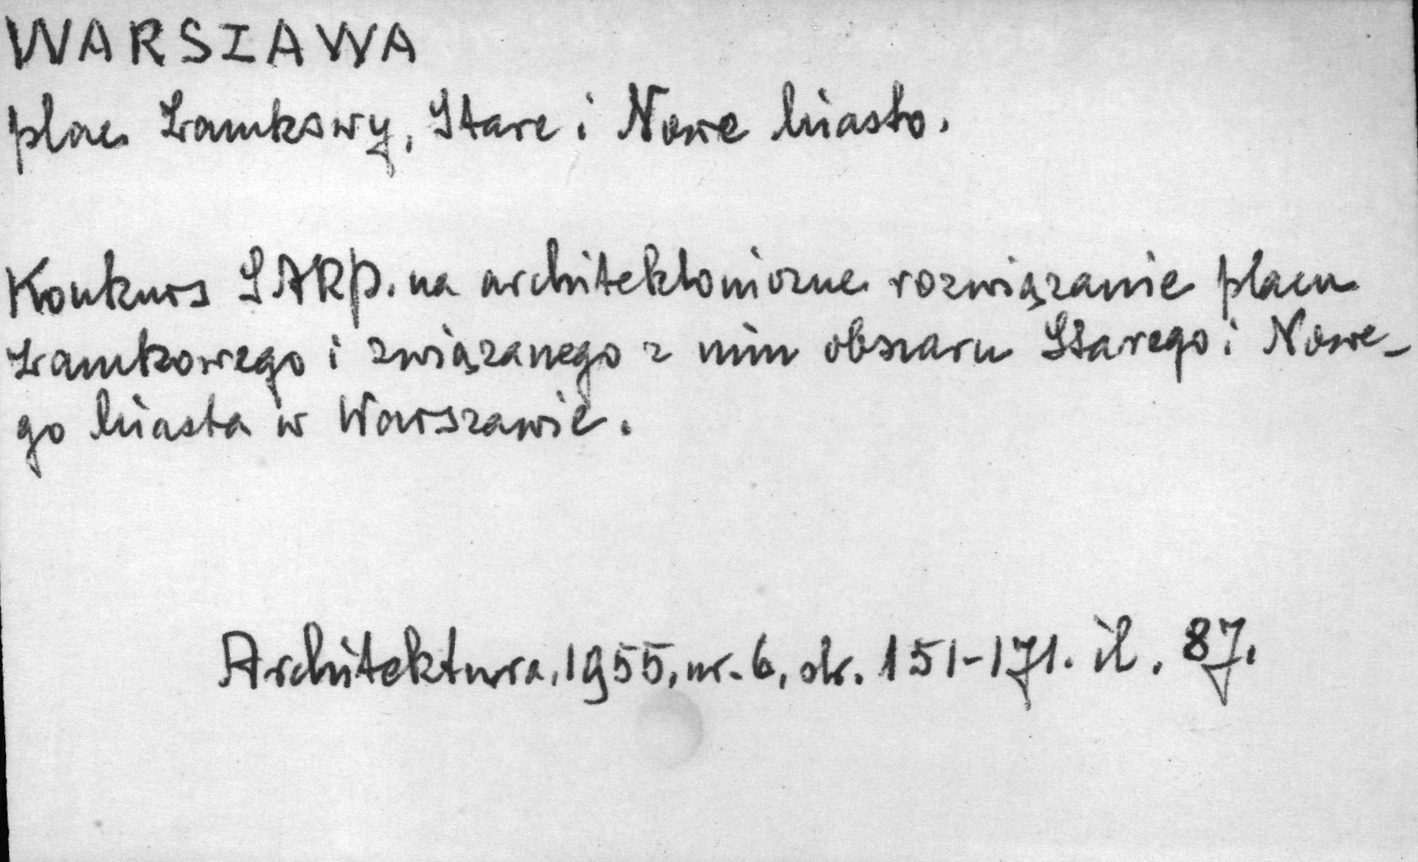 WARSZAWA
plac Zamkowy, Stare i Nowe Miasto.
Konkurs SARP. na architektoniczne rozwiązanie placu
Zamkowego i związanego z nim obszaru Starego i Nowe-
go Miasta w Warszawie.
Architektura, 1955, nr. 6, str. 151-171. il. 87.